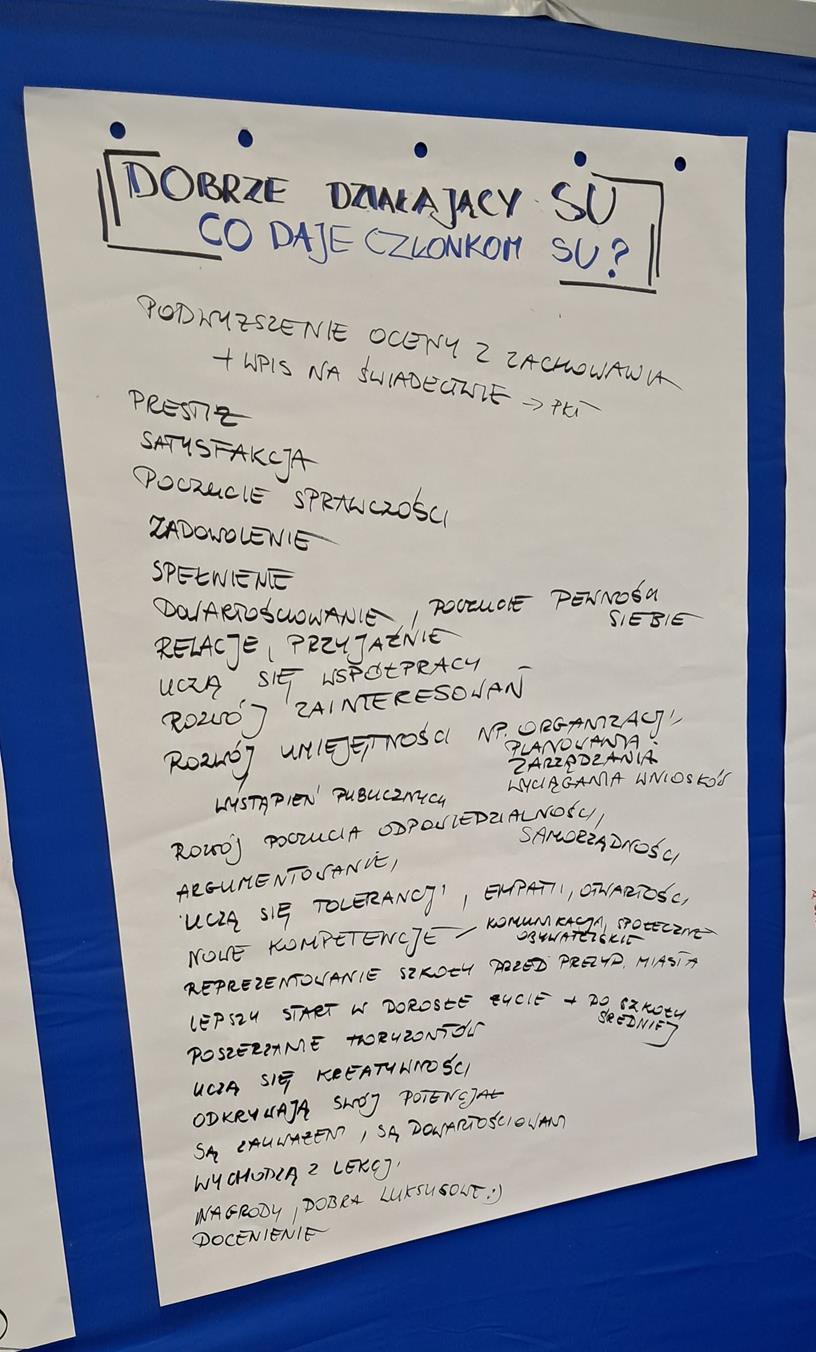 DOBRZE DZIAŁAJĄCY SU
CO DAJE CZŁONKOM SU?
PODWYŻSZENIE OCENY Z ZACHOWANIA
+ WPIS NA ŚWIADECTWIE → PKT
PRESTIŻ
SATYSFAKCJA
POCZUCIE SPRAWCZOŚCI
ZADOWOLENIE
SPEŁNIENIE
DOWARTOŚCIOWANIE, POCZUCIE PEWNOŚCI
SIEBIE
RELACJE, PRZYJAŹNIE
UCZĄ SIĘ WSPÓŁPRACY
ROZWÓJ ZAINTERESOWAŃ
ROZWÓJ UMIEJĘTNOŚCI NP. ORGANIZACJI,
PLANOWANIA
ZARZĄDZANIA
WYCIĄGANIA WNIOSKÓW
WYSTĄPIEŃ PUBLICZNYCH
ROZWÓJ POCZUCIA ODPOWIEDZIALNOŚCI,
SAMORZĄDNOŚCI
ARGUMENTOWANIE,
UCZĄ SIĘ TOLERANCJI, EMPATII, OTWARTOŚCI,
NOWE KOMPETENCJE / KOMUNIKACJA, SPOŁECZNE
OBYWATELSKIE
REPREZENTOWANIE SZKOŁY PRZED PREZYD. MIASTA
LEPSZY START W DOROSŁE ŻYCIE + DO SZKOŁY
ŚREDNIEJ
POSZERZANIE HORYZONTÓW
UCZĄ SIĘ KREATYWNOŚCI
ODKRYWAJĄ SWÓJ POTENCJAŁ
SĄ ZAUWAŻENI, SĄ DOWARTOŚCIOWANI
WYCHODZĄ Z LEKCJI
NAGRODY, DOBRA LUKSUSOWE :)
DOCENIENIE